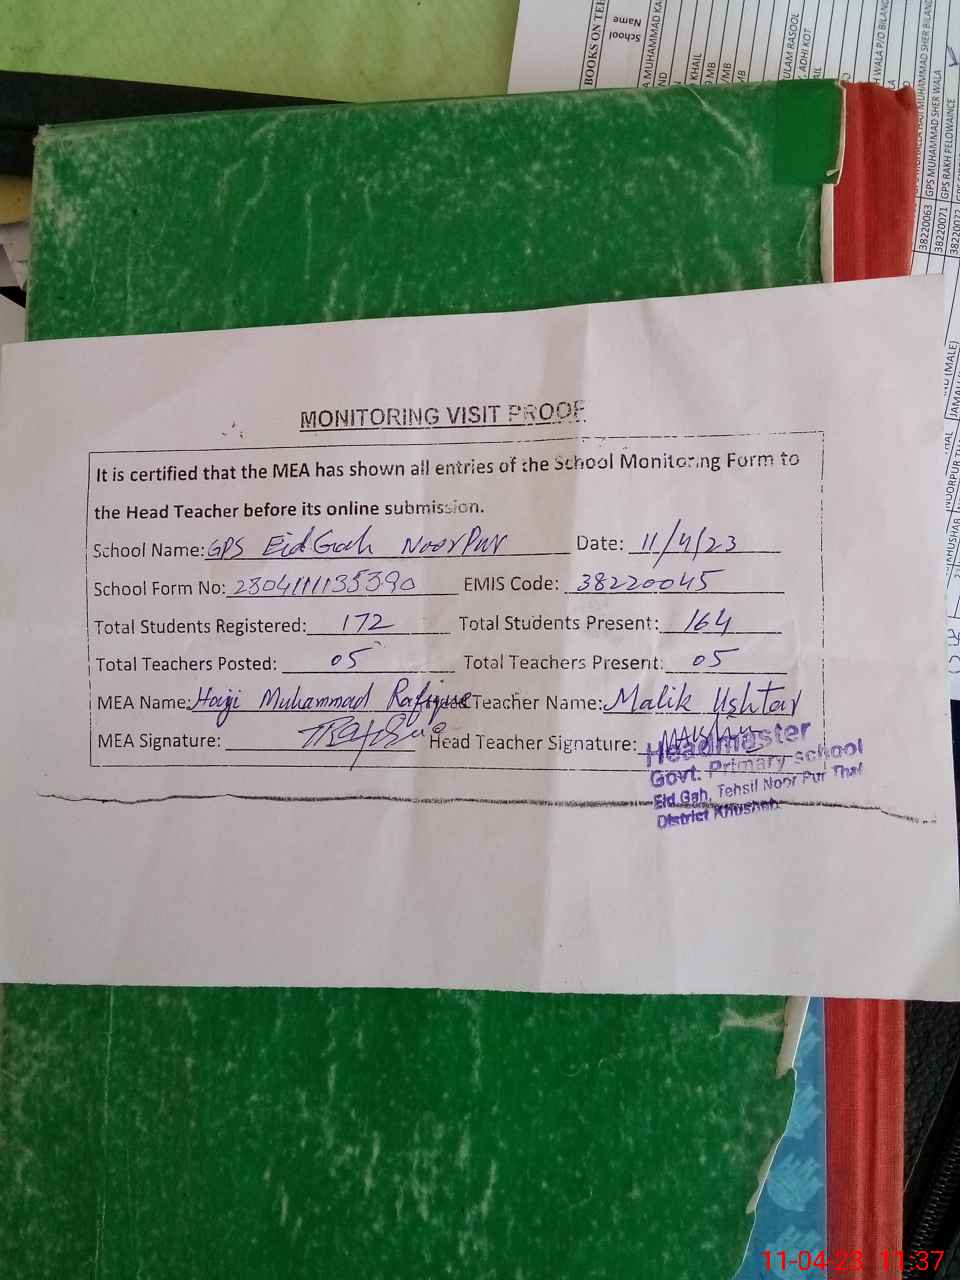 BOOKS ON TEH
School
Name
38220063 GPS MUHAMMAD SHER WALA
38220071 GPS RAKH PELOWAINCE
MONITORING VISIT PROOF
It is certified that the MEA has shown all entries of the School Monitoring Form to
the Head Teacher before its online submission.
School Name: GPS Eid Gah NoorPur Date: 11/4/23
School Form No: 2304111135390 EMIS Code: 38220045
Total Students Registered: 172 Total Students Present: 164
Total Teachers Posted: 05 Total Teachers Present: 05
MEA Name: Haji Muhammad Rafique Teacher Name: Malik Ushtar
MEA Signature: Head Teacher Signature:
Headmaster
Govt. Primary school
Eid Gah, Tehsil Noor Pur Thal
District Khushab.
11-04-23 11:37